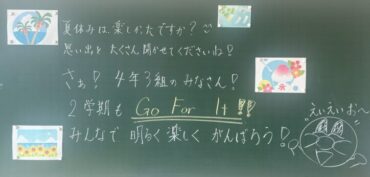 夏休みは、楽しかったですか?
思い出をたくさん聞かせてくださいね!
さぁ! 4年3組のみなさん!
2学期も Go For It!!!
みんなで 明るく楽しく がんばろう!
えいえいお〜